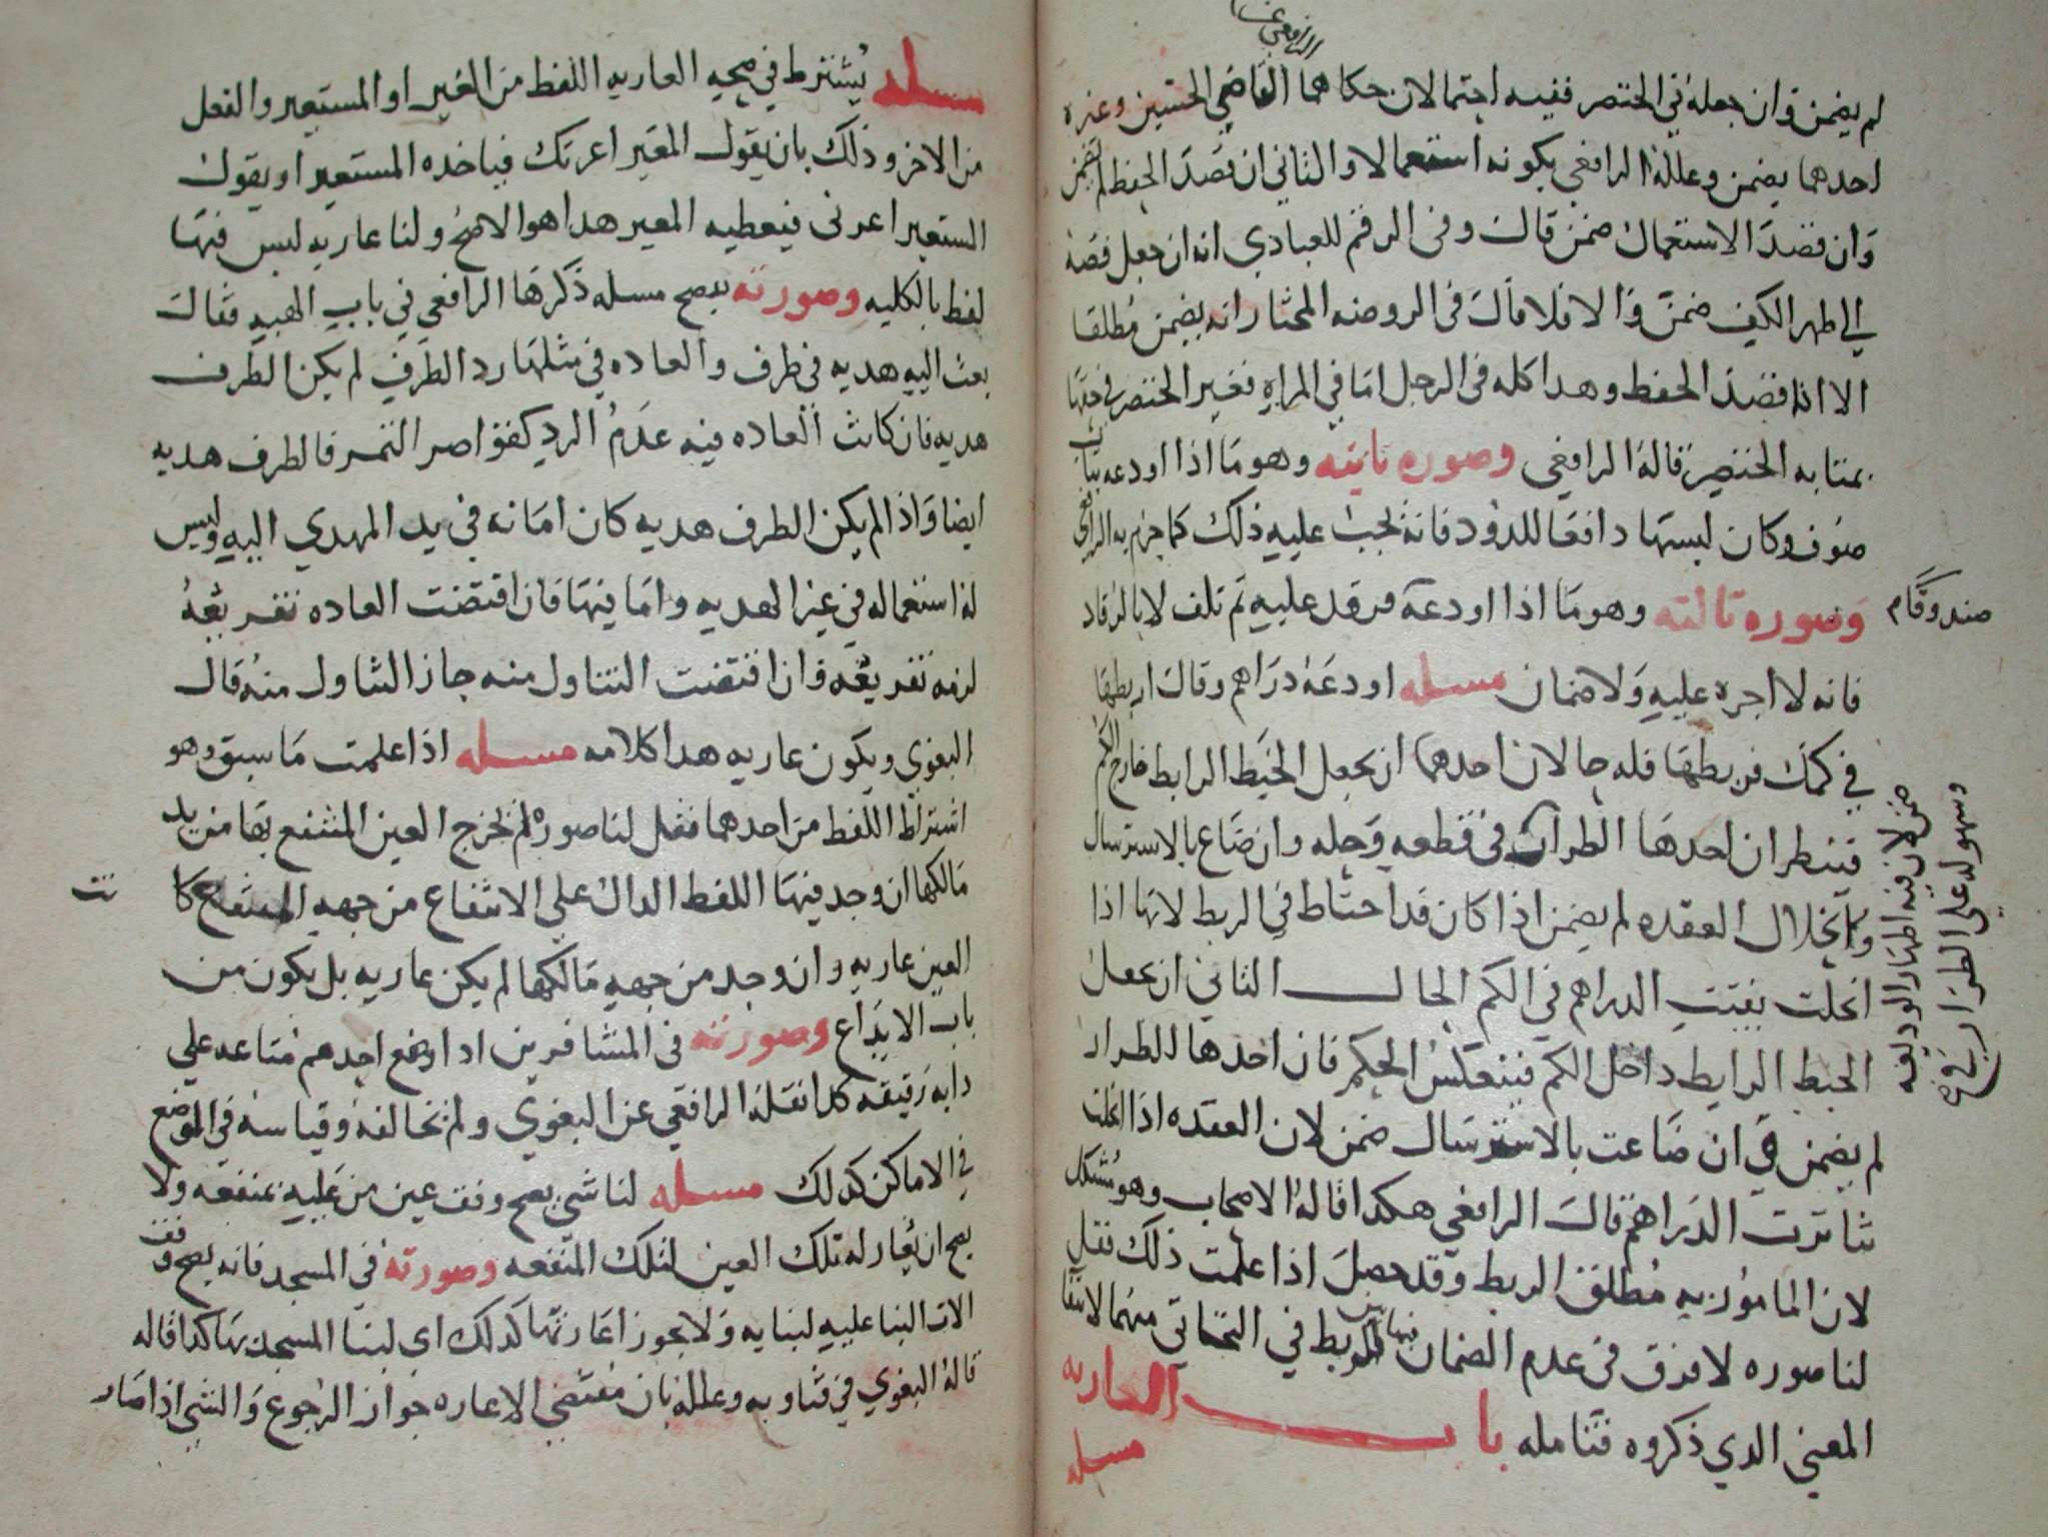 الرافعي عنه
لم يضمن وان جعله في الخنصر ففيه احتمالان حكاهما القاضي الحسين وغيره
احدهما يضمن وعلله الرافعي بكونه استعمالا والثاني ان قصد الحفظ لم يضمن
وان قصد الاستعمال ضمن قال وفي الرقم للعبادي انه ان جعل فصه
الي ظهر الكف ضمن والا فلا قال في الروضه المختار انه يضمن مطلقا
الا اذا قصد الحفظ وهدا كله في الرجل اما في المراه فغير الخنصر في حقها
بمثابه الخنصر قاله الرافعي وصوره ثانيه وهو ما اذا اودعه ثياب
صوف وكان لبسها دافعا للدود فانه يجب عليه ذلك كما جزم به الرافعي
وصوره ثالثه وهو ما اذا اودعه فرقد عليه ثم تلف لا بالرقاد
صندوقا م
فانه لا اجره عليه ولا ضمان مسله اودعه دراهم وقال اربطها
في كمك فربطها فله حالان احدهما ان يجعل الخيط الرابط خارج الكم
فينظر ان اخدها الطرار في قطعه وحله وان ضاع بالاسترسال
ضمن لان فيه اظهار الوديعه
وسهوله علي الطرار في
وانحلال العقده لم يضمن اذا كان قد احتاط في الربط لانها اذا
انحلت بقيت الدراهم في الكم الحال الثاني ان يجعل
الخيط الرابط داخل الكم فينعكس الحكم فان اخدها الطرار
لم يضمن وان ضاعت بالاسترسال ضمن لان العقده اذا انحلت
تناثرت الدراهم قال الرافعي هكدا قاله الاصحاب وهو مشكل
لان المامور به مطلق الربط وقد حصل اذا علمت ذلك فقل
لنا صوره لا فرق في عدم الضمان فيها بين الربط في التحتاني منهما لانتفا
المعني الدي ذكروه فتامله باب العاريه
مسله
مسله يشترط في صحه العاريه اللفظ من المعير او المستعير والفعل
من الاخر وذلك بان يقول المعير اعرتك فياخده المستعير او يقول
المستعير اعرني فيعطيه المعير هدا هو الاصح ولنا عاريه ليس فيها
لفظ بالكليه وصورته يوضح مسله ذكرها الرافعي في باب الهبه فقال
بعث اليه هديه في ظرف والعاده في مثلها رد الظرف لم يكن الظرف
هديه فان كانت العاده فيه عدم الرد كقواصر التمر فالظرف هديه
ايضا واذا لم يكن الظرف هديه كان امانه في يد المهدي اليه وليس
له استعماله في غير الهديه واما فيها فان اقتضت العاده تفريغه
لزمه تفريغه وان اقتضت التناول منه جاز التناول منه قال
البغوي ويكون عاريه هدا كلامه مسله اذا علمت ما سبق وهو
اشتراط اللفظ من احدهما فقل لنا صوره لم تخرج العين المنتفع بها من يد
مالكها ان وجد فيها اللفظ الدال علي الانتفاع من جهه المنتفع كا
نت
العين عاريه وان وجد من جهه مالكها لم يكن عاريه بل يكون من
باب الايداع وصورته في المسافرين ادا وضع احدهم متاعه علي
دابه رفيقه كدا نقله الرافعي عن البغوي ولم يخالفه وقياسه في الموضع
في الاماكن كدلك مسله لنا شي يصح وقف عين من عليه بمنفعه ولا
يصح ان يعار له تلك العين لتلك المنفعه وصورته في المسجد فانه يصح وقف
الات البنا عليه لبنايه ولا يجوز اعارتها كدلك اي لبنا المسجد بها كدا قاله
قاله البغوي في فتاويه وعلله بان مقتضي الاعاره جواز الرجوع والشي اذا صار